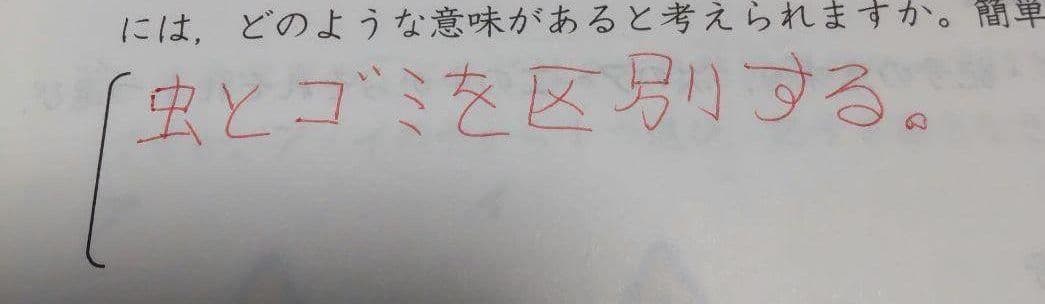 には，どのような意味があると考えられますか。簡単
虫とゴミを区別する。